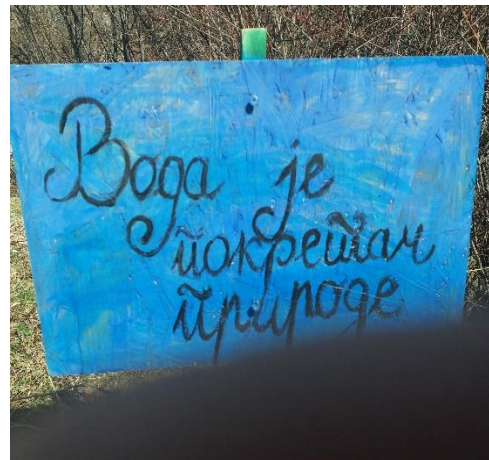 Вода је
покретач
природе